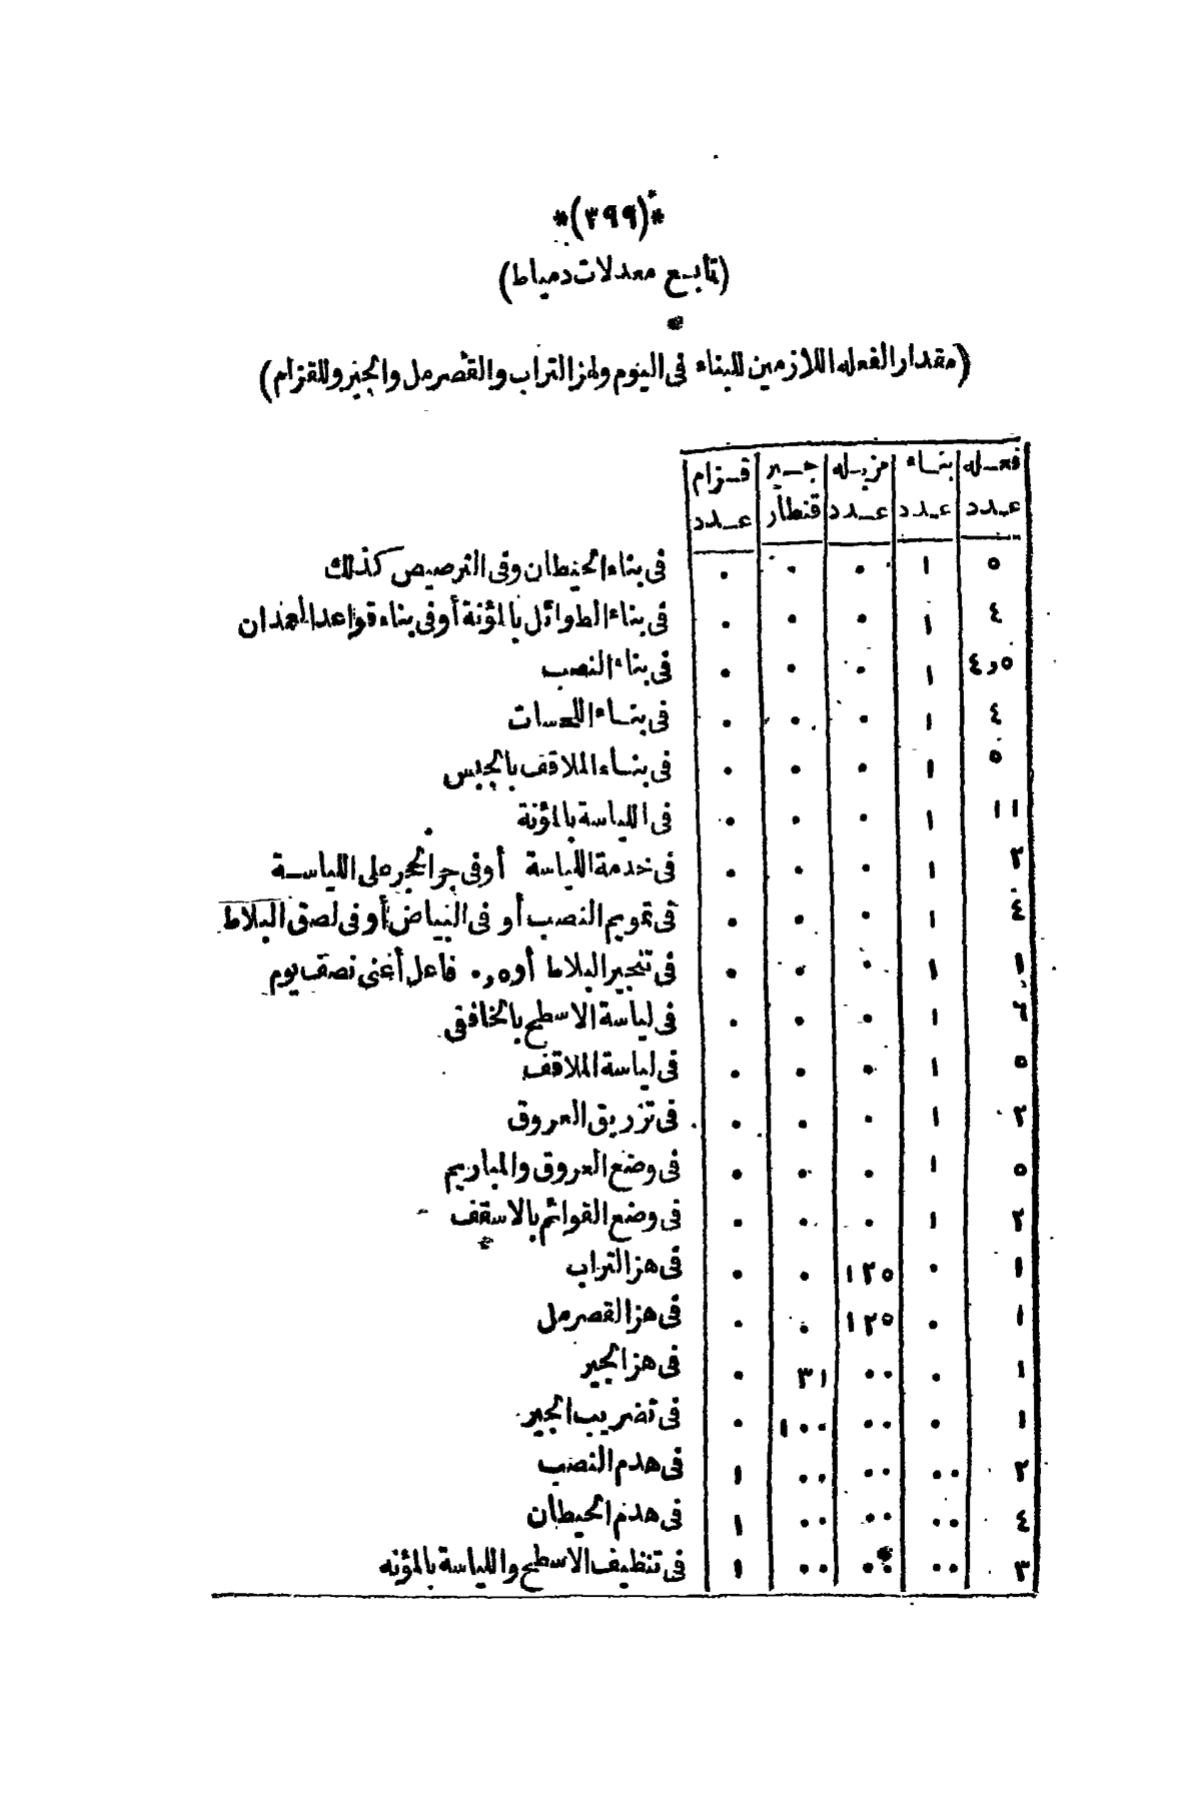 *(٣٩٩)*
(تابع معدلات دمياط)
(مقدار الفعله اللازمين للبناء فى اليوم ولهز التراب والقصرمل والجير وللقزام)
فعله بناء مزبله جير قزام
عدد عدد عدد قنطار عدد
٥ ١ ٠ ٠ ٠ فى بناء الحيطان وفى الترصيص كذلك
٤ ١ ٠ ٠ ٠ فى بناء الطوائل بالمؤنة أو فى بناء قواعد العمدان
٤٫٥ ١ ٠ ٠ ٠ فى بناء النصب
٤ ١ ٠ ٠ ٠ فى بناء اللحسات
٥ ١ ٠ ٠ ٠ فى بناء الملاقف بالجبس
١١ ١ ٠ ٠ ٠ فى اللياسة بالمؤنة
٢ ١ ٠ ٠ ٠ فى خدمة اللياسة أو فى جر الحجر على اللياسة
٤ ١ ٠ ٠ ٠ فى تمويم النصب أو فى البياض أو فى لصق البلاط
١ ١ ٠ ٠ ٠ فى تنجير البلاط أو ٠٫٥ فاعل أعنى نصف يوم
٦ ١ ٠ ٠ ٠ فى لياسة الاسطح بالخافقى
٥ ١ ٠ ٠ ٠ فى لياسة الملاقف
٢ ١ ٠ ٠ ٠ فى تزريق العروق
٥ ١ ٠ ٠ ٠ فى وضع العروق والمباريم
٢ ١ ٠ ٠ ٠ فى وضع القوائم بالاسقف
١ ٠ ١٢٥ ٠ ٠ فى هز التراب
١ ٠ ١٢٥ ٠ ٠ فى هز القصرمل
١ ٠ ٠٠ ٣١ ٠ فى هز الجير
١ ٠ ٠٠ ١٠٠ ٠ فى تضريب الجير
٢ ٠٠ ٠٠ ٠٠ ١ فى هدم النصب
٤ ٠٠ ٠٠ ٠٠ ١ فى هدم الحيطان
٣ ٠٠ ٠٠ ٠٠ ١ فى تنظيف الاسطح واللياسة بالمؤنه